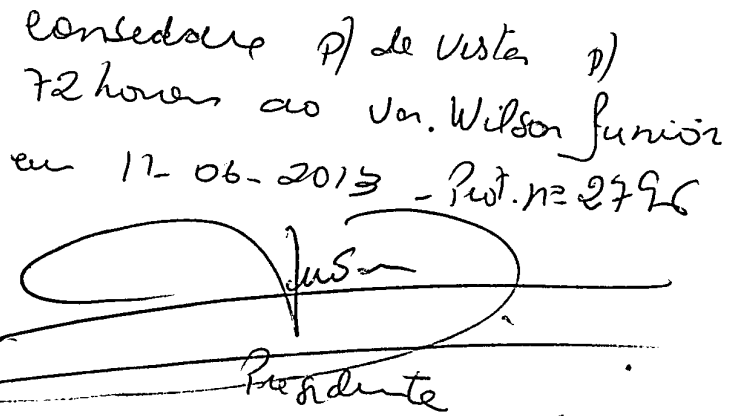 consedoue p) de vista p)
72 horas ao Ver. Wilson Junior
em 11-06-2013 - Prot. nº 2796
Presidente